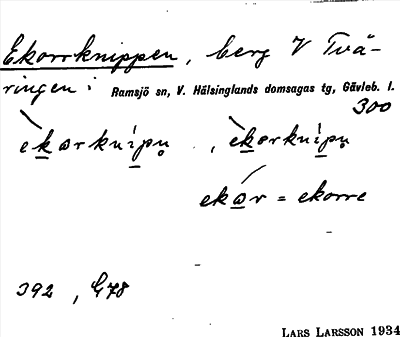 Ekorrknippen, berg V Tvä-
ringen: Ramsjö sn, V. Hälsinglands domsagas tg, Gävleb. l.
300
ekorknipn , ekorknipn
ekor = ekorre
392 , G78
LARS LARSSON 1934